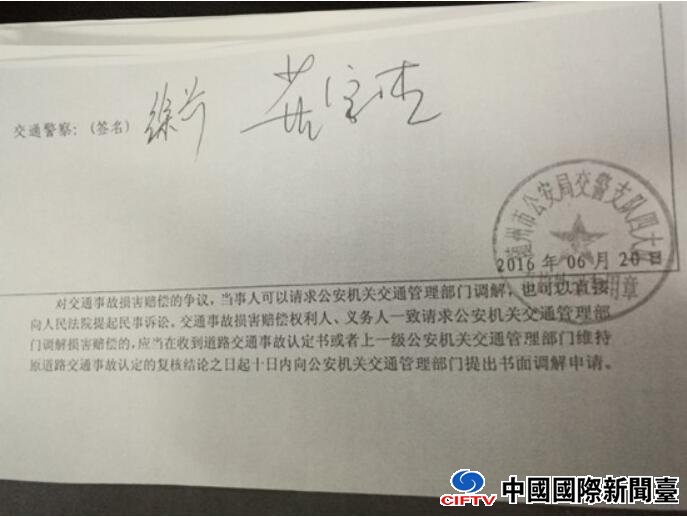 交通警察：(签名)
市公安局交警支队四大队
2016 年 06 月 20 日
用章
对交通事故损害赔偿的争议，当事人可以请求公安机关交通管理部门调解，也可以直接
向人民法院提起民事诉讼。交通事故损害赔偿权利人、义务人一致请求公安机关交通管理部
门调解损害赔偿的，应当在收到道路交通事故认定书或者上一级公安机关交通管理部门维持
原道路交通事故认定的复核结论之日起十日内向公安机关交通管理部门提出书面调解申请。
CIFTV 中國國際新聞臺